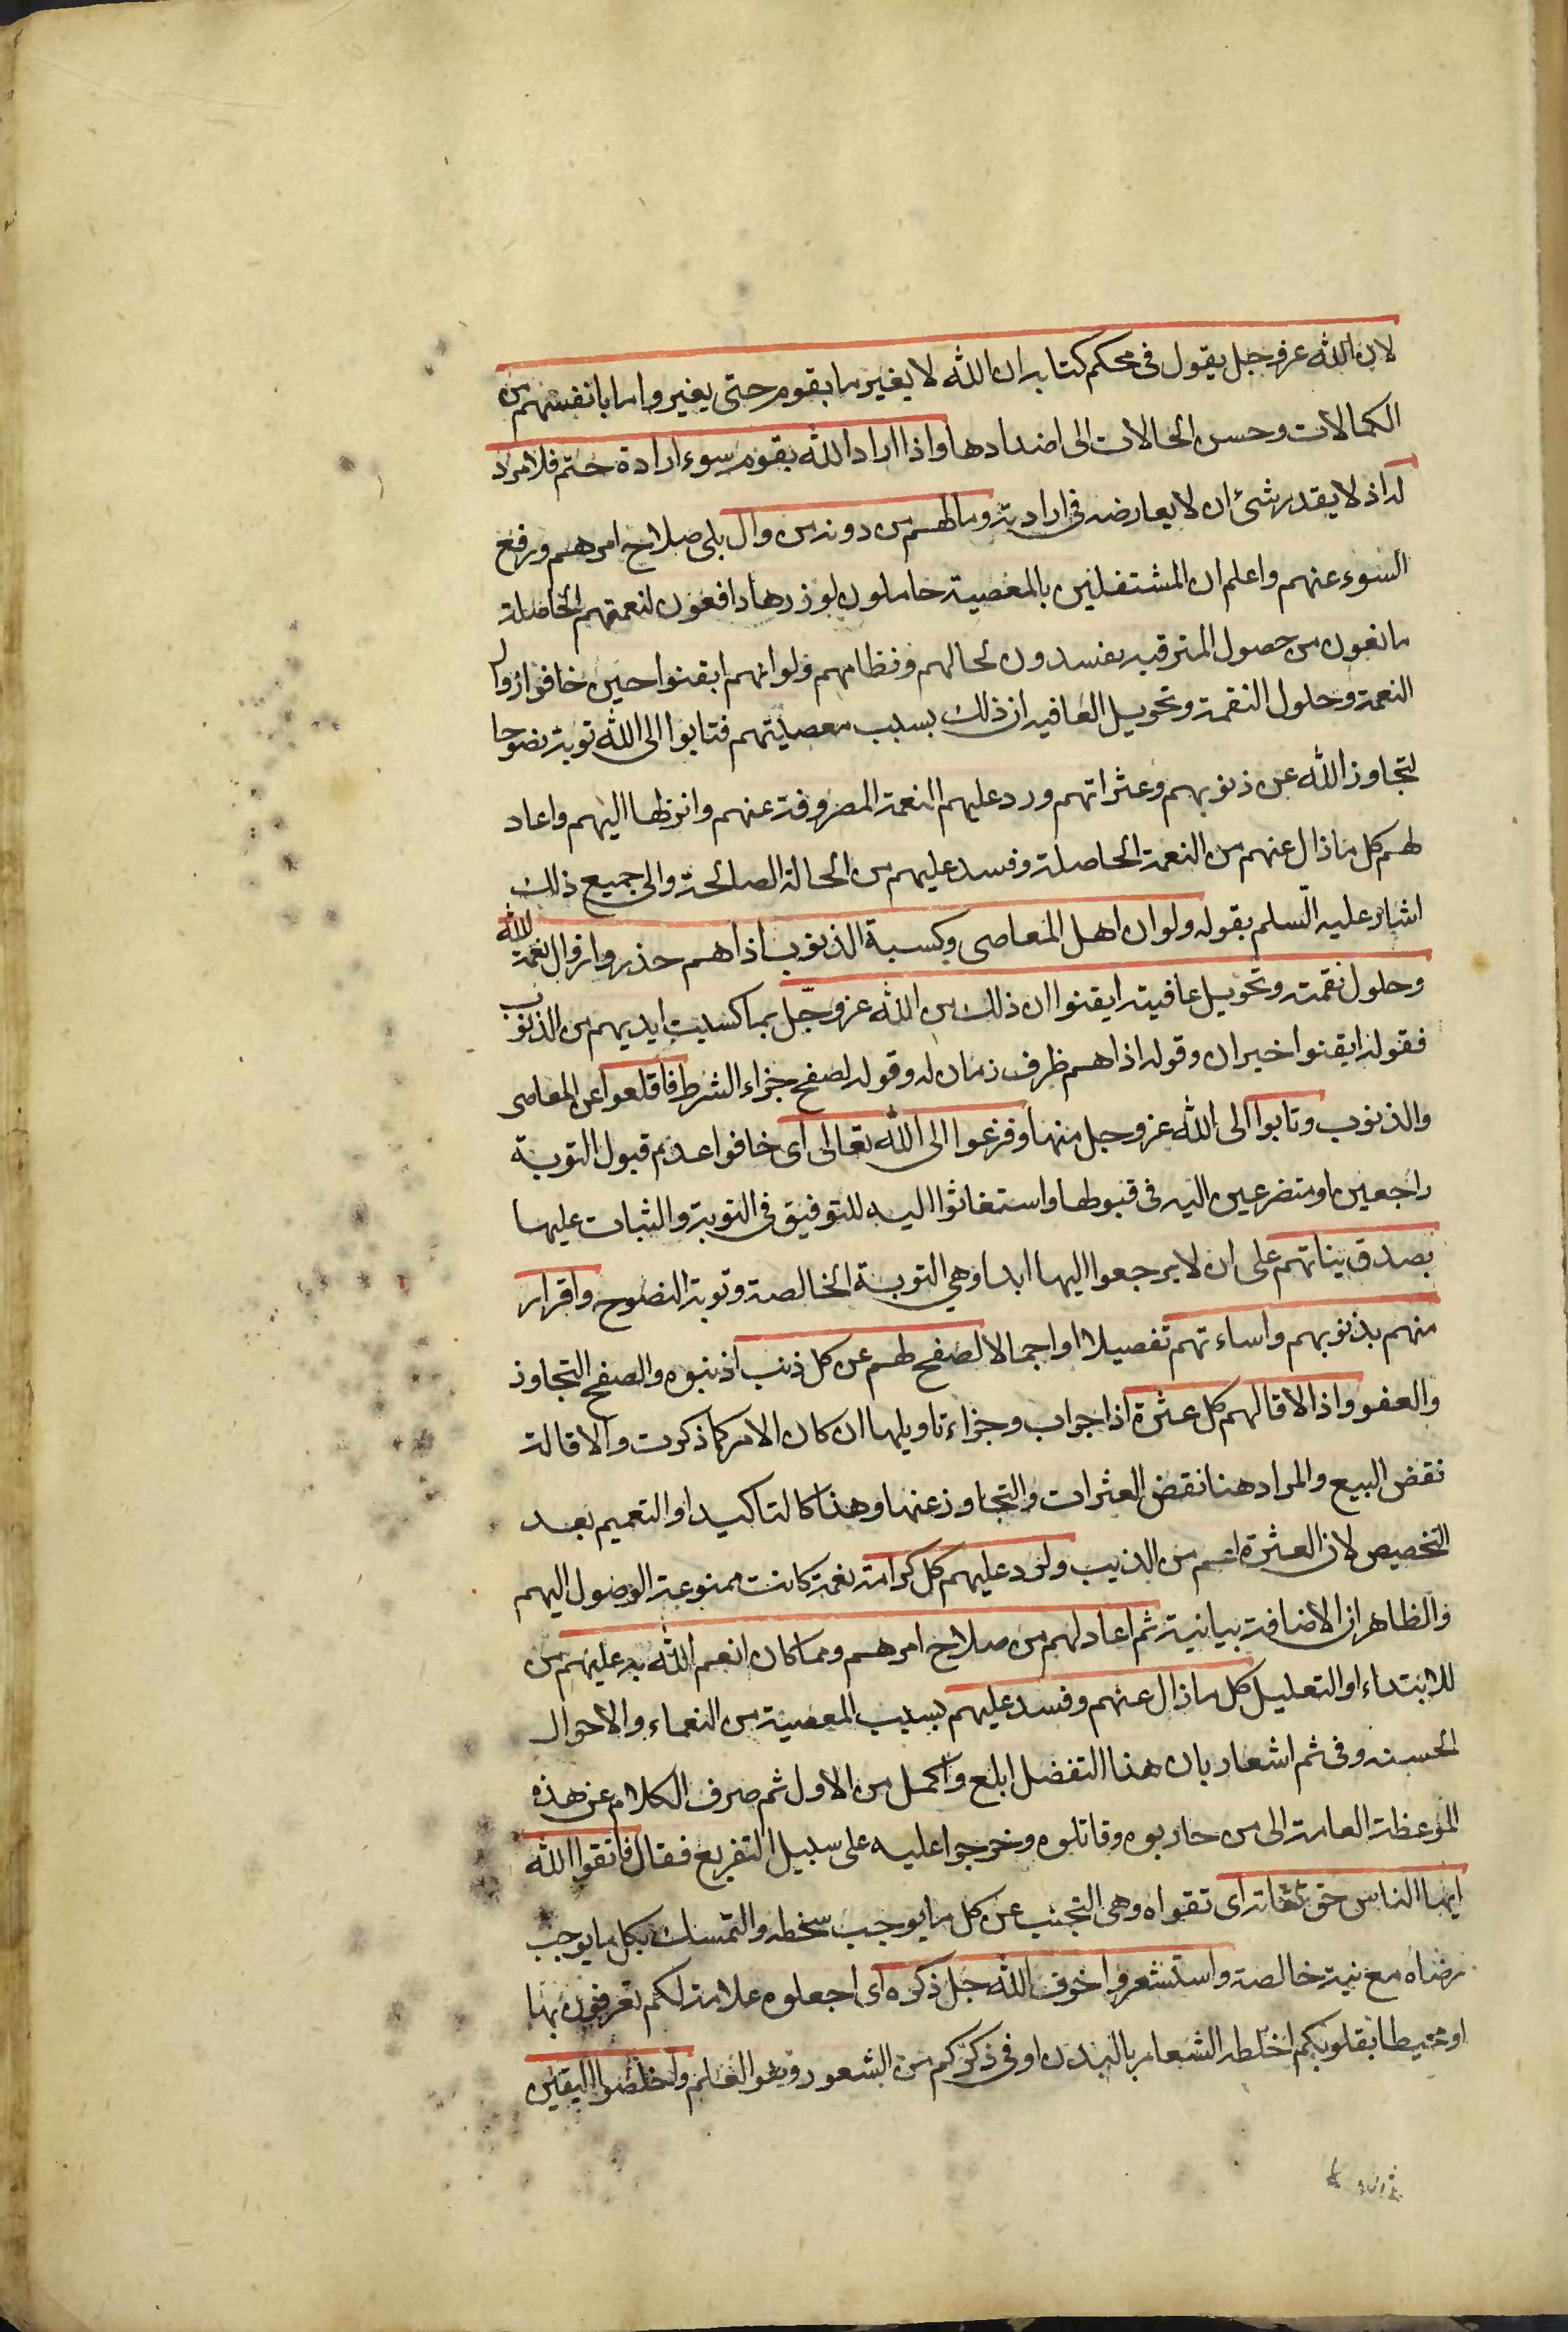 لان الله عز وجل يقول فى محكم كتابه ان الله لا يغير ما بقوم حتى يغيروا ما بانفسهم من
الكمالات وحسن الحالات الى اضدادها واذا اراد الله بقوم سوء ارادة حتم فلا مرد
له اذ لا يقدر شئ ان لا يعارضه فى ارادته وما لهم من دونه من وال يلى صلاح امرهم ورفع
السوء عنهم واعلم ان المشتغلين بالمعصية حاملون لوزرها دافعون لنعمتهم الحاصلة
مانعون من حصول المترقبه مفسدون لحالهم ونظامهم ولو انهم ايقنوا حين خافوا زوال
النعمة وحلول النقمة وتحويل العافيه ان ذلك بسبب معصيتهم فتابوا الى الله توبة نضوحا
لتجاوز الله عن ذنوبهم وعثراتهم ورد عليهم النعمة المصروفة عنهم وانزلها اليهم واعاد
لهم كل ما زال عنهم من النعمة الحاصلة وفسد عليهم من الحالة الصالحة والى جميع ذلك
اشار عليه السلم بقوله ولو ان اهل المعاصى وكسبة الذنوب اذا هم حذروا زوال نعمة الله
وحلول نقمته وتحويل عافيته ايقنوا ان ذلك من الله عز وجل بما كسبت ايديهم من الذنوب
فقوله ايقنوا خبر ان وقوله اذا هم ظرف زمان له وقوله لصفح جزاء الشرط فاقلعوا عن المعاصى
والذنوب وتابوا الى الله عز وجل منها وفزعوا الى الله تعالى اى خافوا عدم قبول التوبة
راجعين او متضرعين اليه فى قبولها واستغاثوا اليه للتوفيق فى التوبة والثبات عليها
بصدق نياتهم على ان لا يرجعوا اليها ابدا وهي التوبة الخالصة وتوبة النضوح واقرار
منهم بذنوبهم واساءتهم تفصيلا او اجمالا لصفح لهم عن كل ذنب اذنبوه والصفح التجاوز
والعفو واذا لاقالهم كل عثرة اذا جواب وجزاء تاويلها ان كان الامر كما ذكرت والاقالة
نقض البيع والمراد هنا نقض العثرات والتجاوز عنها وهذا كالتاكيد او التعميم بعد
التخصيص لان العثرة اعم من الذنب ولرد عليهم كل كرامة نعمة كانت ممنوعة الوصول اليهم
والظاهر ان الاضافة بيانية ثم اعاد لهم من صلاح امرهم ومما كان انعم الله به عليهم من
للابتداء او التعليل كل ما زال عنهم وفسد عليهم بسبب المعصية من النعماء والاحوال
الحسنه وفى ثم اشعار بان هذا التفضل ابلغ واكمل من الاول ثم صرف الكلام عن هذه
الموعظة العامة الى من حاربوه وقاتلوه وخرجوا عليه على سبيل التفريع فقال فاتقوا الله
ايها الناس حق تقاته اى تقواه وهى التجنب عن كل ما يوجب سخطه والتمسك بكل ما يوجب
رضاه مع نية خالصة واستشعروا خوف الله جل ذكره اى اجعلوه علامة لكم تعرفون بها
او محيطا بقلوبكم اخلطه الشعار بالبدن او فى ذكركم من الشعور وهو العلم واخلصوا اليقين